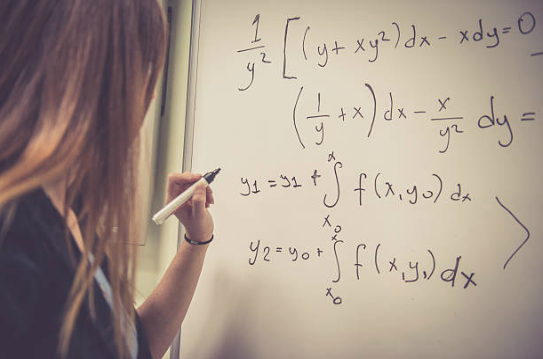 1/y² [(y + xy²)dx - xdy = 0
(1/y + x)dx - x/y² dy =
y₁ = y₁ + ∫ₓ₀ˣ f(x, y₀) dx
y₂ = y₀ + ∫ₓ₀ˣ f(x, y₁) dx